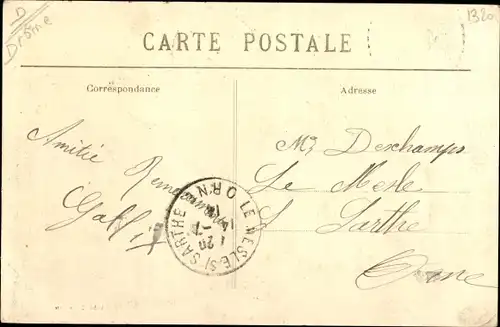 D
Drôme
1320
CARTE POSTALE
Correspondance
Adresse
Amitié
Gall
Mr Deschamps
Le Mesle
S Sarthe
Orne
LE MESLE S/ SARTHE ORNE